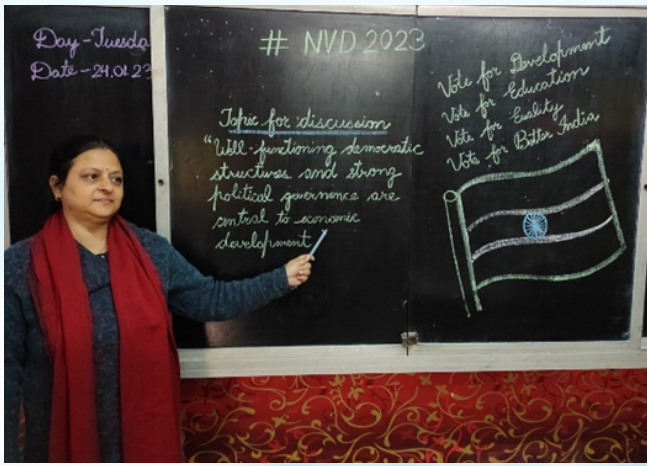 Day-Tuesda
Date-24.01.23
# NVD 2023
Topic for discussion
"Well-functioning democratic
structures and strong
political governence are
central to economic
development
Vote for Development
Vote for Education
Vote for Euality
Vote for Better India